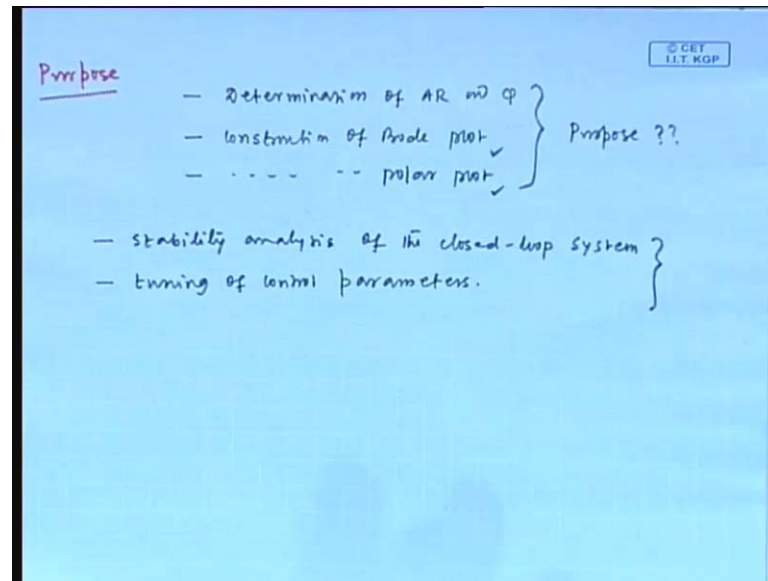 © CET
I.I.T. KGP
Purpose
- Determination of AR and φ
- Construction of Bode plot ✓
- ---- -- polar plot ✓
Purpose ??
- stability analysis of the closed-loop system
- tuning of control parameters.